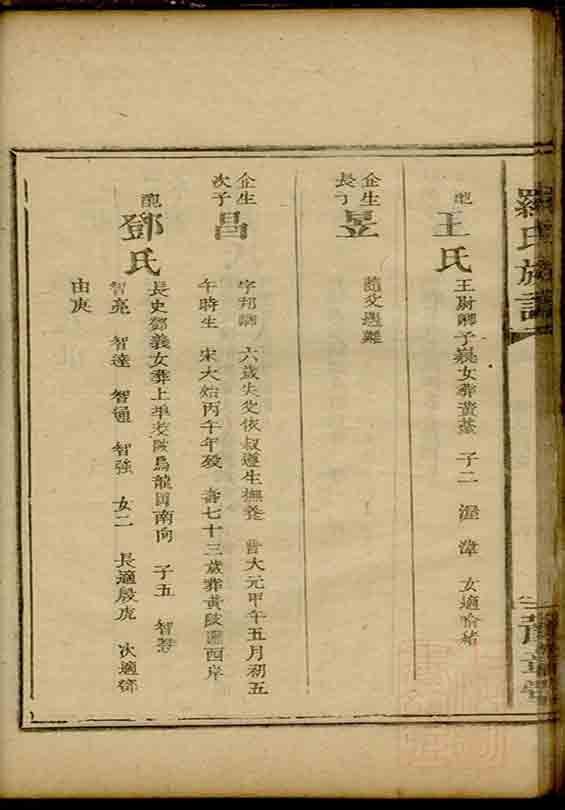 羅氏族譜
二
豫章堂
配
王氏
王尉卿子 女葬黃 子二 渥 渾 女適喻緒
企生
長丁
昱
隨父遇難
企生
次子
昌
字邦 六歲失父依叔遵生撫養 晉大元甲午五月初五
午時生 宋大始丙午年歿 壽七十三歲葬黃陂 西岸
配
鄧氏
長史鄧義女葬上 陂烏龍 南向 子五 智
智亮 智達 智通 智強 女二 長適殷虎 次適鄧
由庚